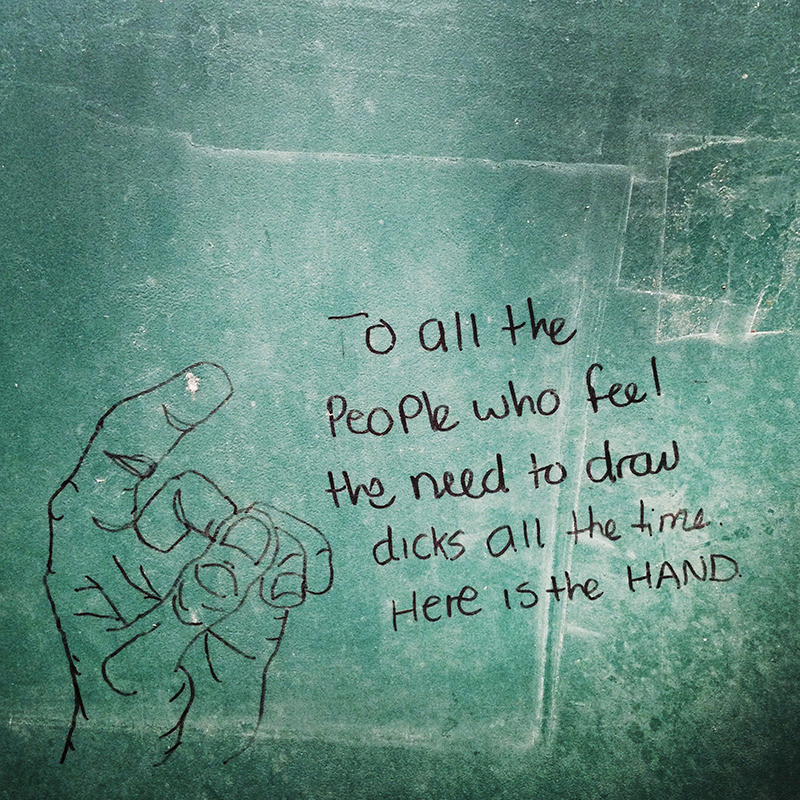 To all the
People who feel
the need to draw
dicks all the time.
Here is the HAND.